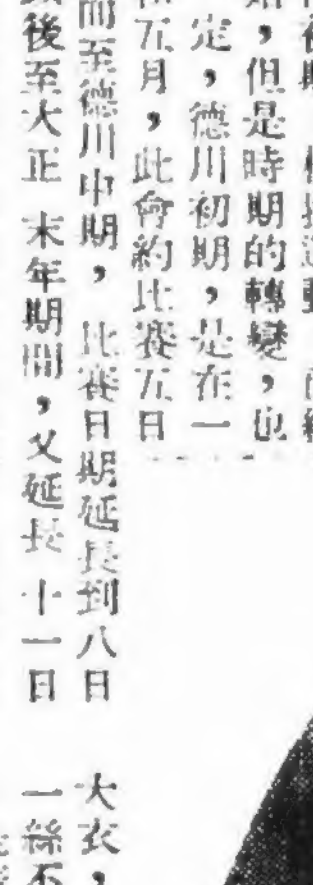 但是時期的轉變，也
定，德川初期，是在一
五月，此會約比賽五日
而至德川中期，比賽日期延長到八日
後至大正末年期間，又延長十一日
大衣，
一絲不